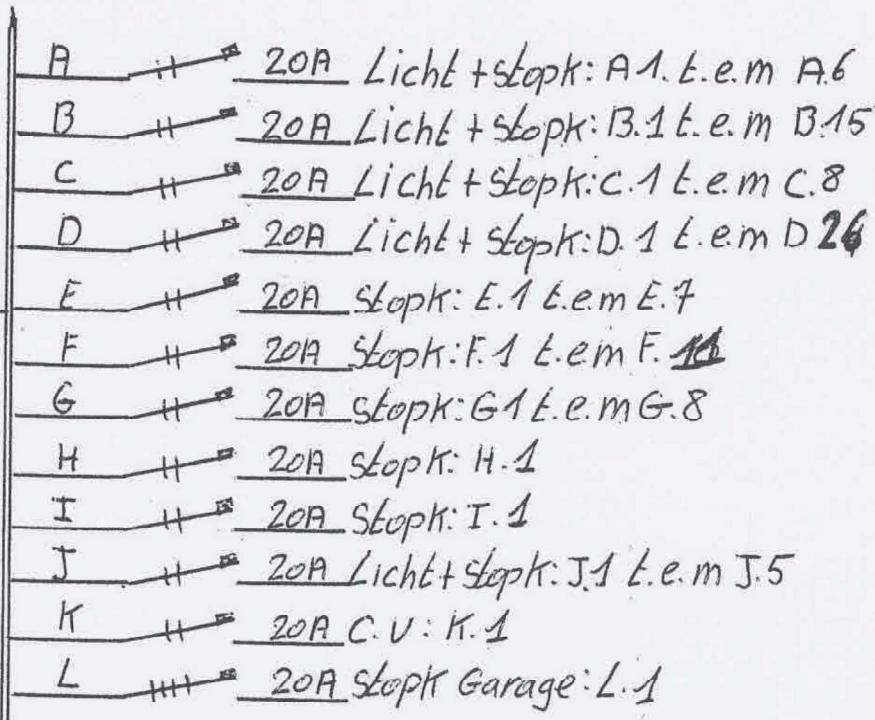 A 20A Licht + Stopk: A1. t.e.m A.6
B 20A Licht + Stopk: B.1 t.e.m B.15
C 20A Licht + Stopk: C.1 t.e.m C.8
D 20A Licht + Stopk: D.1 t.e.m D 26
E 20A Stopk: E.1 t.e.m E.7
F 20A Stopk: F.1 t.e.m F. 11
G 20A Stopk: G1 t.e.m G.8
H 20A Stopk: H.1
I 20A Stopk: I.1
J 20A Licht + Stopk: J.1 t.e.m J.5
K 20A C.V: K.1
L 20A Stopk Garage: L.1